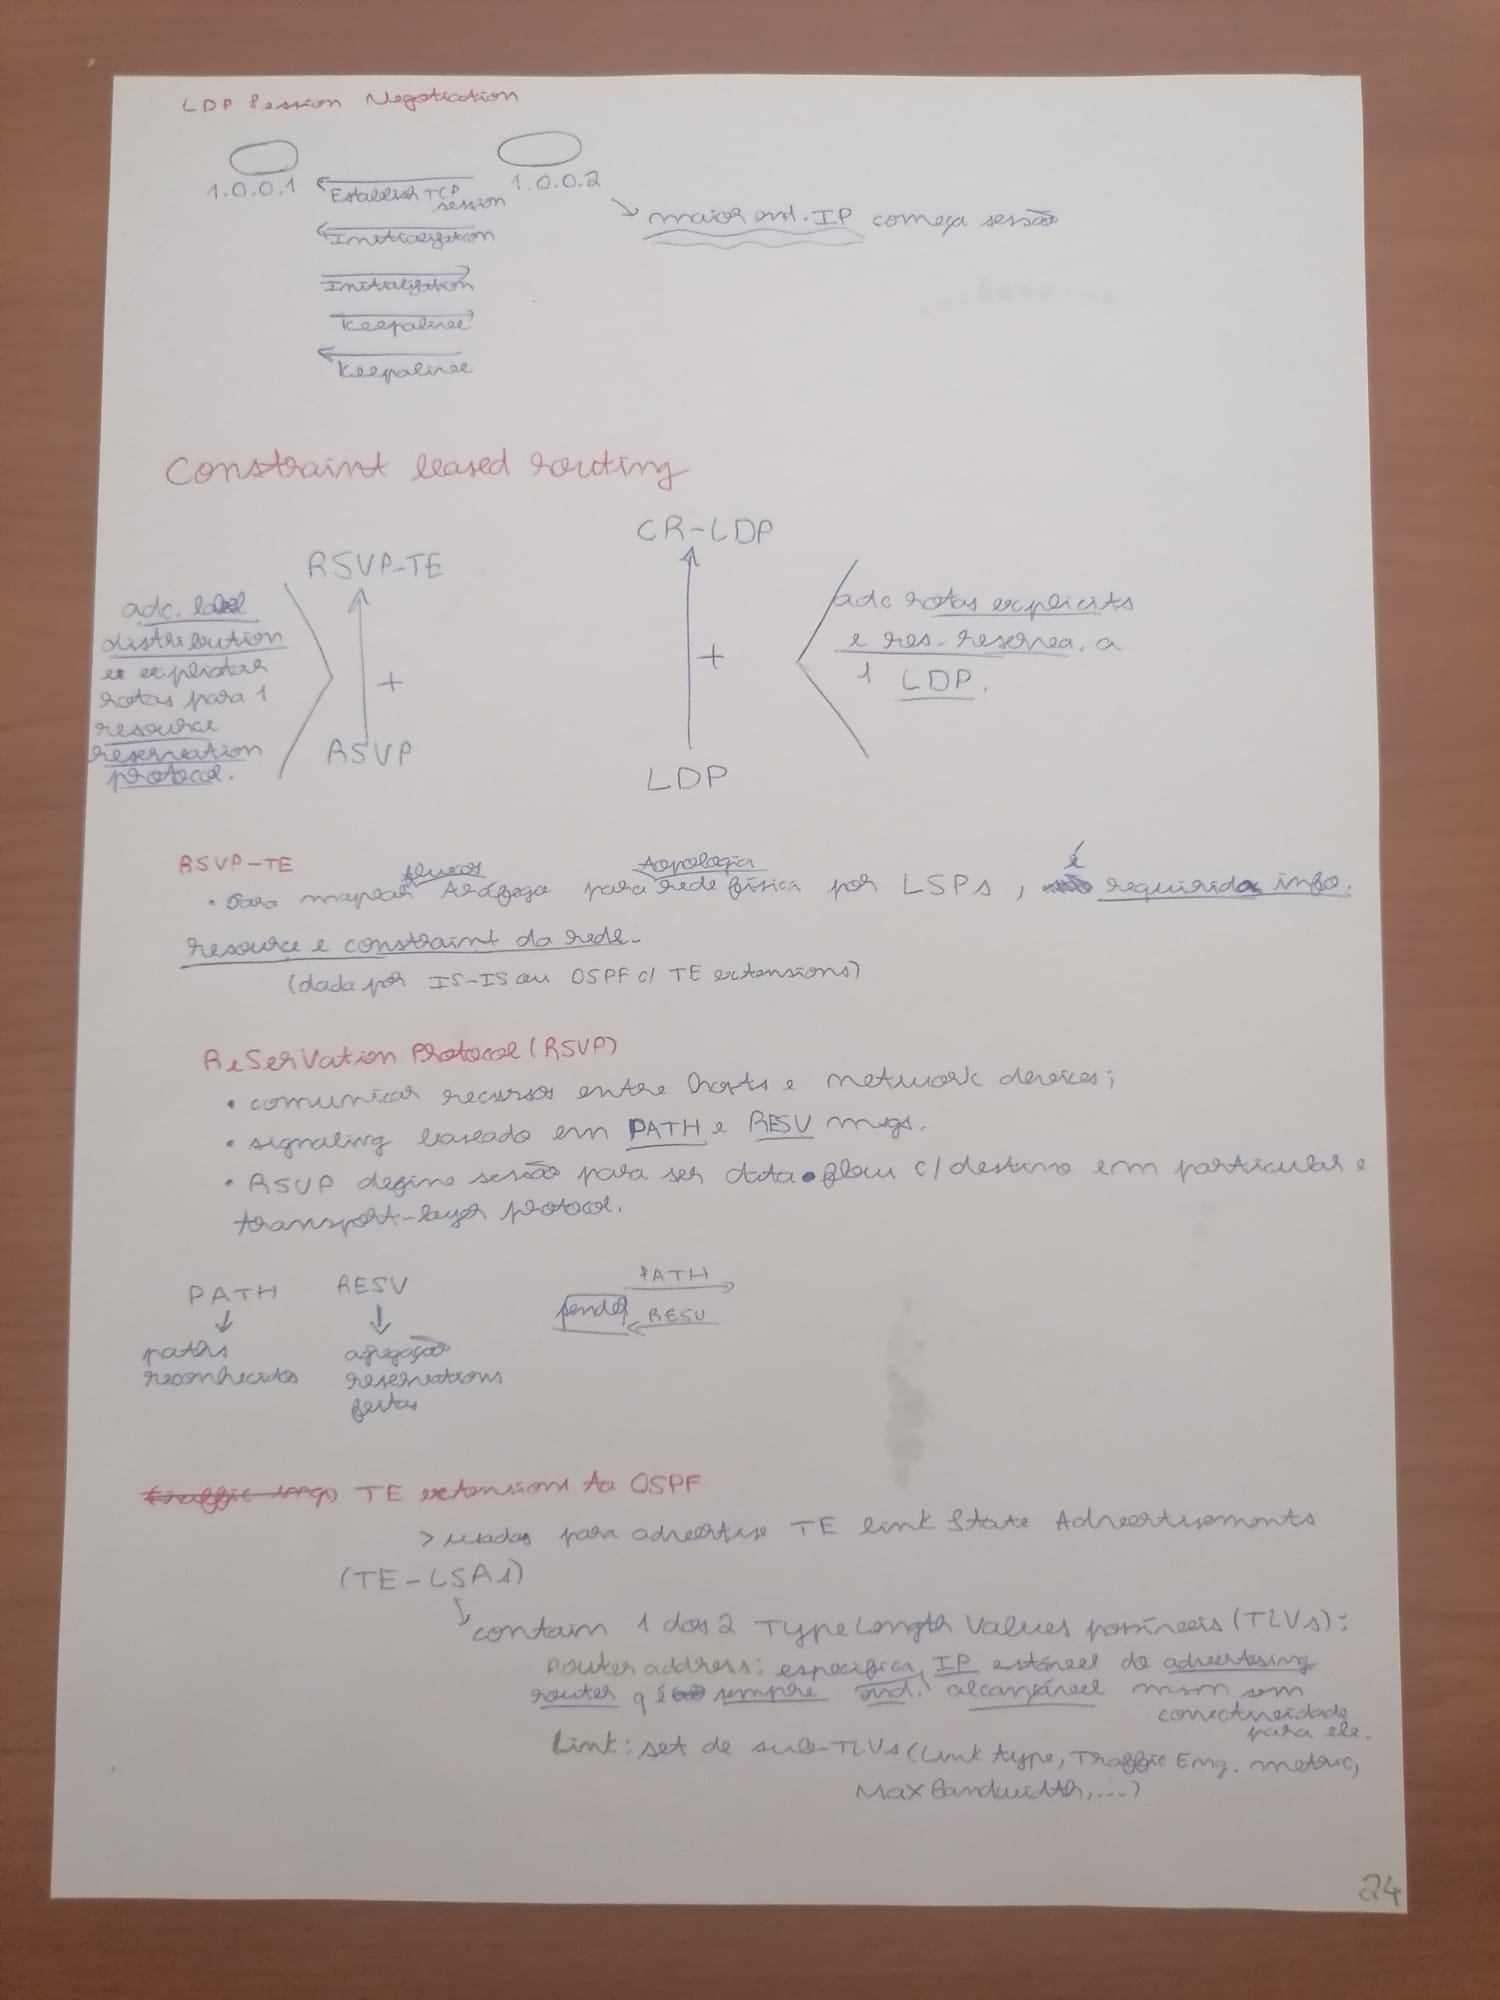 LDP Session Negotiation
1.0.0.1
1.0.0.2
Establish TCP
session
Initialization
Initialization
Keepalive
Keepalive
maior end. IP começa sessão
Constraint based routing
RSVP-TE
+
RSVP
adc. label
distribution
e explicitar
rotas para 1
resource
reservation
protocol.
CR-LDP
+
LDP
adc rotas explicits
e res. reserva. a
1 LDP.
RSVP-TE
fluxos
topologia
é
• Para mapear tráfego para rede física por LSPs, requirida info.
resource e constraint da rede.
(dada por IS-IS ou OSPF c/ TE extensions)
ReSerVation Protocol (RSVP)
• comunicar recursos entre hosts e network devices;
• signaling baseado em PATH e RESV msgs.
• RSVP define sessão para ser data flow c/ destino em particular e
transport-layer protocol.
PATH
paths
reconhecidos
RESV
agregação
reservations
feitas
PATH
RESV
TE extensions to OSPF
> usadas para advertise TE link State Advertisements
(TE-LSAs)
contain 1 dos 2 Type Length Values possíveis (TLVs):
Router address: especifica IP estável do advertising
router q é sempre end. alcançável msm sem
conectividade
para ele.
Link: set de sub-TLVs (Link type, Traffic Eng. metric,
Max Bandwidth, ....)
24